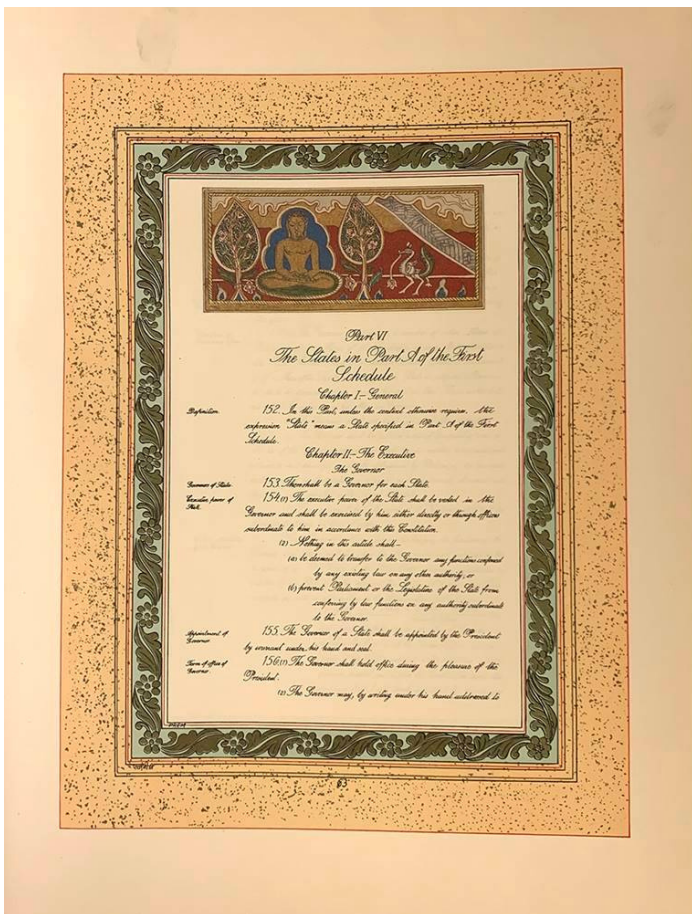 Part VI
The States in Part A of the First
Schedule
Chapter I.- General
Definition. 152. In this Part, unless the context otherwise requires, the
expression "State" means a State specified in Part A of the First
Schedule.
Chapter II.- The Executive
The Governor
Governors of States. 153. There shall be a Governor for each State.
Executive power of 154. (1) The executive power of the State shall be vested in the
State. Governor and shall be exercised by him either directly or through officers
subordinate to him in accordance with this Constitution.
(2) Nothing in this article shall-
(a) be deemed to transfer to the Governor any functions conferred
by any existing law on any other authority; or
(b) prevent Parliament or the Legislature of the State from
conferring by law functions on any authority subordinate
to the Governor.
Appointment of 155. The Governor of a State shall be appointed by the President
Governor. by warrant under his hand and seal.
Term of office of 156. (1) The Governor shall hold office during the pleasure of the
Governor. President.
(2) The Governor may, by writing under his hand addressed to
63